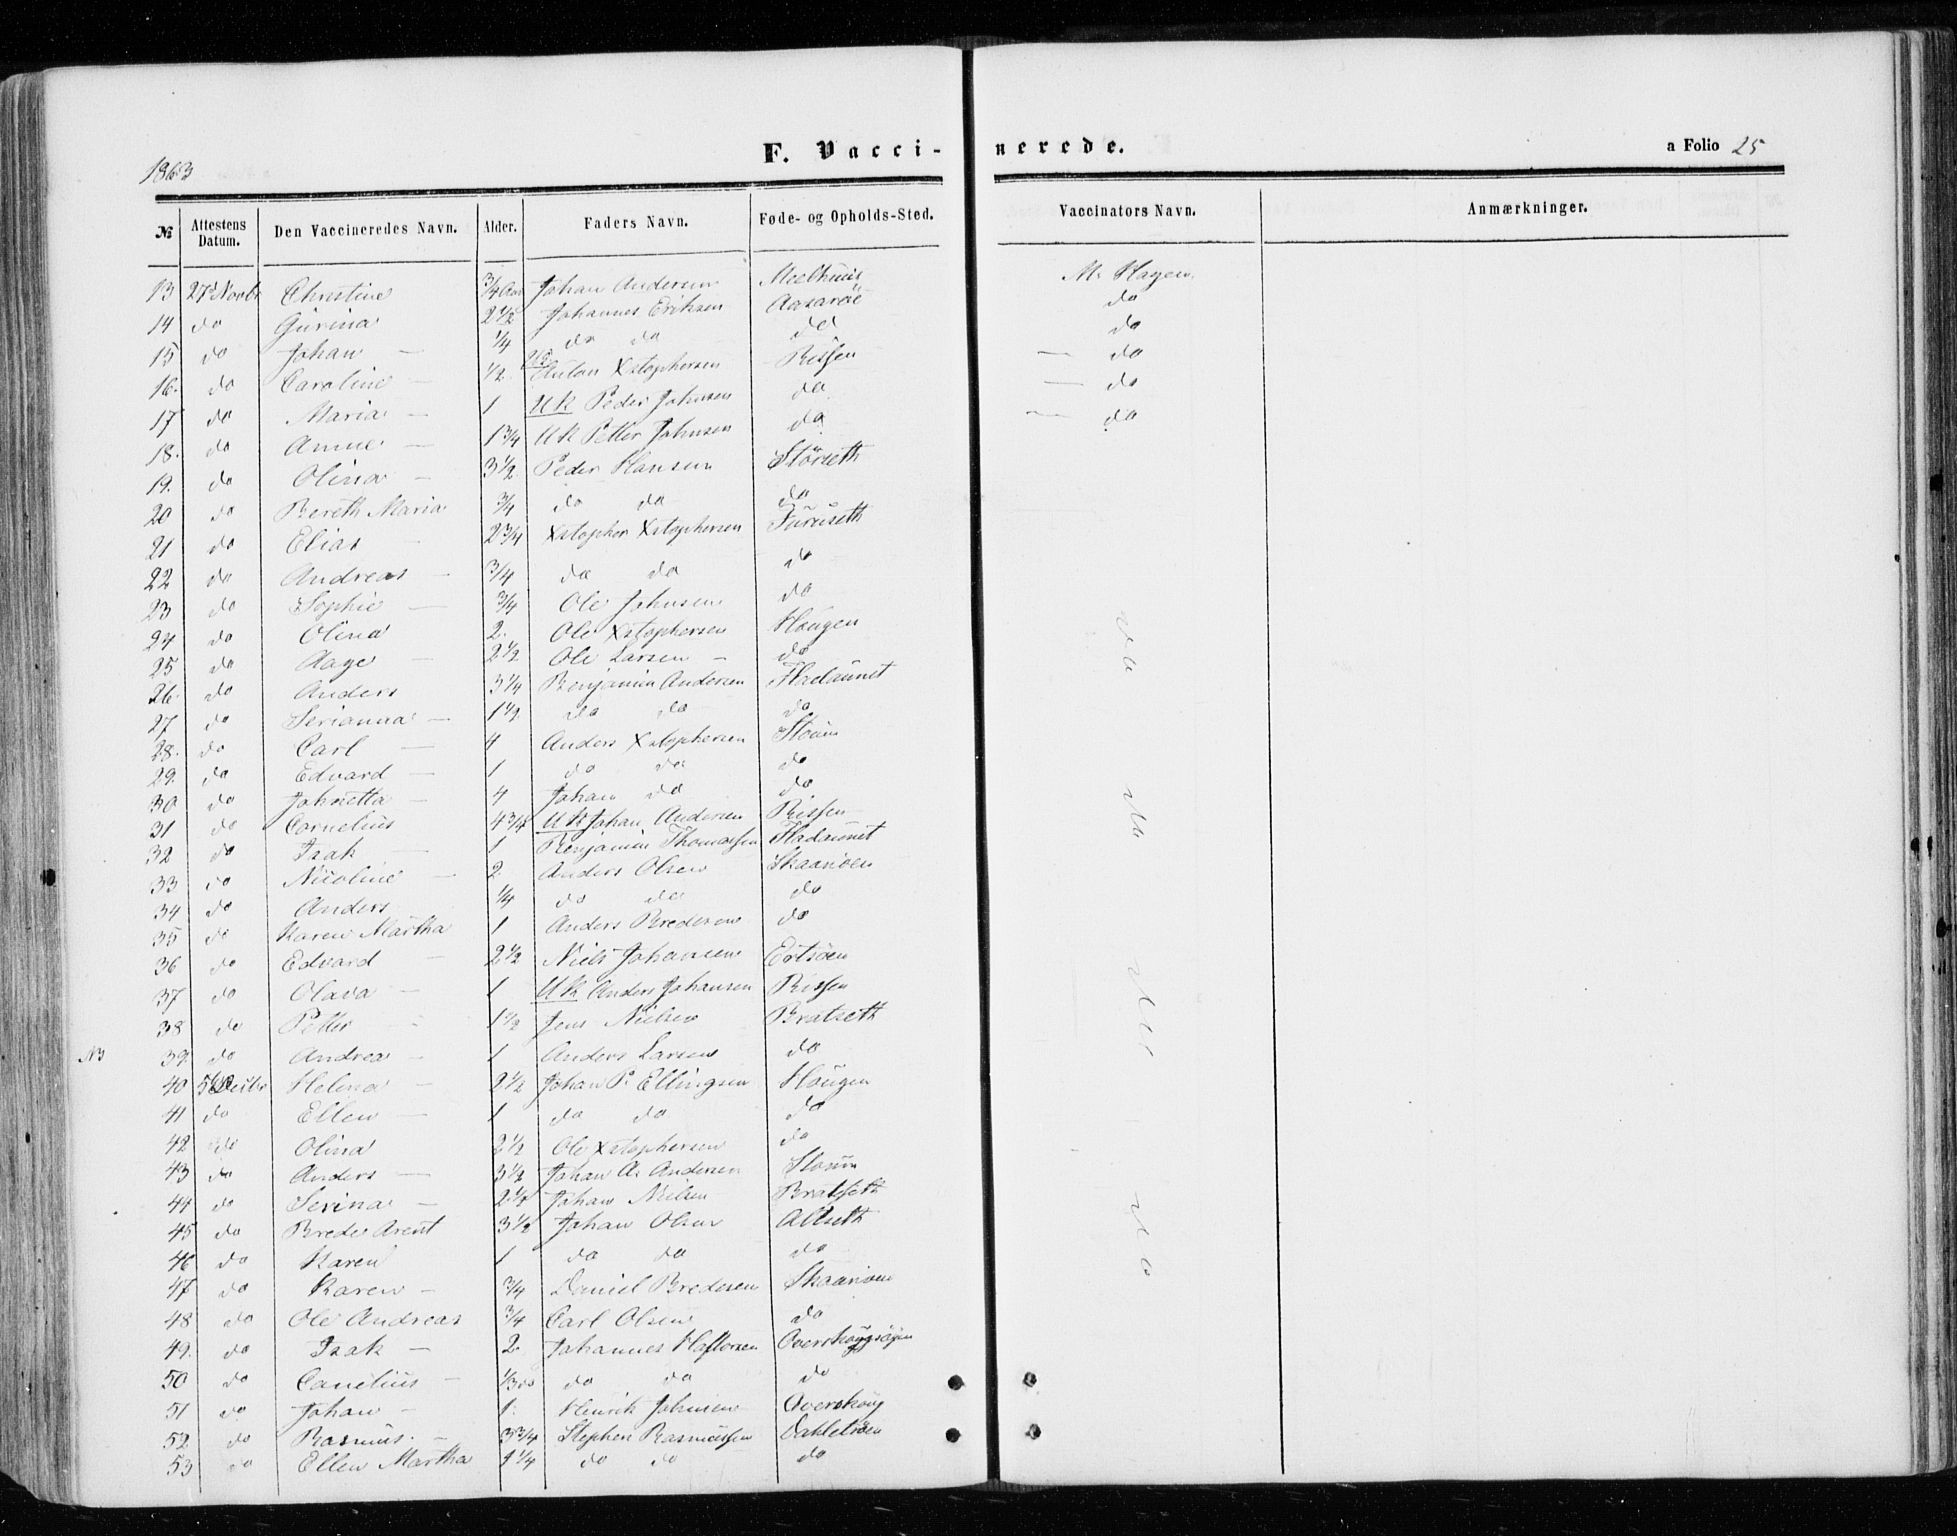 1863
F. Vaccinerede.
a Folio 25
№ | Attestens Datum. | Den Vaccineredes Navn. | Alder. | Faders Navn. | Føde- og Opholds-Sted. | Vaccinators Navn. | Anmærkninger.
13 27d Novbr Christine 3/4 Aar Johan Andersen Meelhuus M. Hagen
14 do Gurina 2 1/2 Johannes Eriksen Aasarøe do
15 do Johan — 1/4 do do do do
16. do Caroline — 1/2 Anton Xstophersen Rissen — do
17 do Maria — 1 UK Peder Johnsen do — do
18. do Anne — 1 3/4 UK Petter Johnsen do — do
19. do Olina — 3 1/2 Peder Hansen Störseth
20 do Bereth Maria 3/4 do do do
21 do Elias — 2 3/4 Xstopher Xstophersen Furuseth
22 do Andreas — 3/4 do do do
23 do Sophie — 3/4 Ole Johnsen do
24 do Olina 2. Ole Xstophersen Hougen
25 do Aage — 2 1/2 Ole Larsen — do
26. do Anders 3 1/4 Benjamin Andersen Fladaunet
27 do Serianna — 1 1/2 do do do
28. do Carl — 4 Anders Xstophersen Stouin
29. do Edvard — 1 do do do
30 do Johnetta — 4 Johan do do
31 do Cornelius 4 3/4 UK Johan Andersen Rissen
32 do Isak — 1 Benjamin Thomassen Fladaunet
33 do Nicoline — 2 Anders Olsen Skaarioen
34 do Anders 1/4 do do do
35 do Karen Martha 1 Anders Bredesen do
36 do Edvard — 2 1/2 Niels Johansen Ertsöen
37 do Olava — 1 UK Anders Johansen Rissen
38 do Petter 1 1/2 Jens Nielsen Bratseth
39. do Andrea — 1 Anders Larsen do
40 5te Decbr Helena — 2 1/2 Johan P. Ellingsen Hougen
41 do Ellen — 1 do do do
42 do Olina 2 1/2 Ole Xstophersen do
43 do Anders — 3 1/2 Johan A. Andersen Stouin
44 do Serina — 2 1/4 Johan Nielsen Bratseth
45 do Brede Arent 3 1/2 Johan Olsen Altseth
46 do Karen 1 do do do
47 do Karen — 3/4 Daniel Bredesen Skaarioen
48 do Ole Andreas 3/4 Carl Olsen do
49. do Isak — 2. Johannes Haftorsen
50 do — 1/3 do do do do
51 do Johan — 1. Henrik Johnsen Overskoug
52 do Rasmus. — 3 3/4 Stephen Rasmussen
53 do Ellen Martha 1 1/4 do do do
do
do
do
do